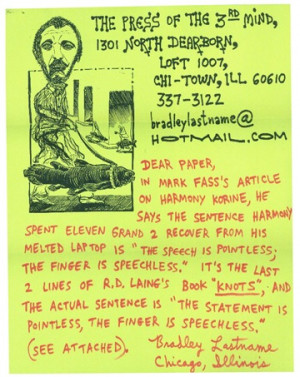 THE PRESS OF THE 3RD MIND,
1301 NORTH DEARBORN,
LOFT 1007,
CHI-TOWN, ILL 60610
337-3122
bradleylastname@
HOTMAIL.COM
DEAR PAPER,
IN MARK FASS'S ARTICLE
ON HARMONY KORINE, HE
SAYS THE SENTENCE HARMONY
SPENT ELEVEN GRAND 2 RECOVER FROM HIS
MELTED LAPTOP IS "THE SPEECH IS POINTLESS;
THE FINGER IS SPEECHLESS." IT'S THE LAST
2 LINES OF R.D. LAING'S BOOK "KNOTS", AND
THE ACTUAL SENTENCE IS "THE STATEMENT IS
POINTLESS, THE FINGER IS SPEECHLESS."
(SEE ATTACHED). Bradley Lastname
Chicago, Illinois